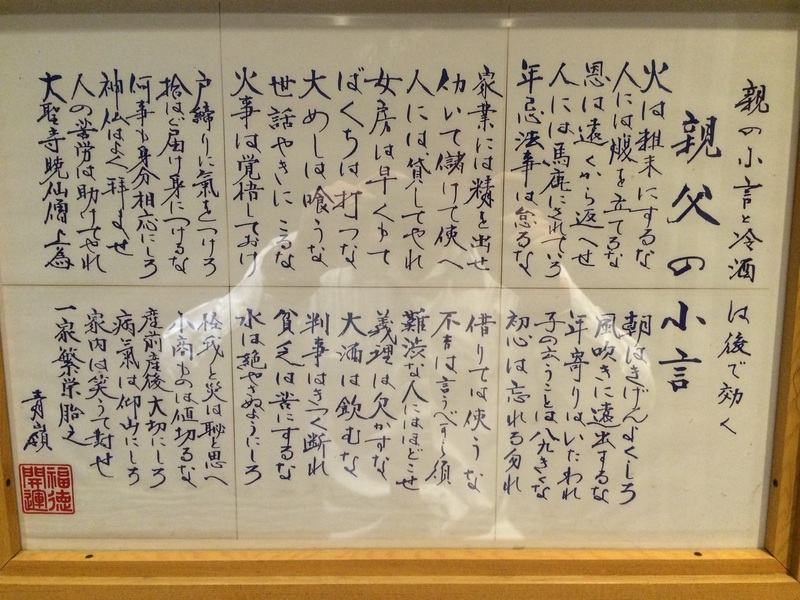 親の小言と冷酒は後で効く
親父の小言
火は粗末にするな
朝はきげんよくしろ
人には腹を立てるな
風吹きに遠出するな
恩は遠くから返へせ
年寄りはいたわれ
人には馬鹿にされていろ
子の云うことは八九きくな
年忌法事は怠るな
初心は忘れる勿れ
家業には精を出せ
借りては使うな
仂いて儲けて使へ
不吉は言うべすら須
人には貸してやれ
難渋な人にはほどこせ
女房は早くもて
義理は欠かすな
ばくちは打つな
大酒は飲むな
大めしは喰うな
判事はきつく断れ
世話やきにこるな
貧乏は苦にするな
火事は覚悟しておけ
水は絶やさぬようにしろ
戸締りに氣をつけろ
怪我と災は恥と思へ
拾はば届け身につけるな
小商ものは値切るな
何事も身分相応にしろ
産前産後大切にしろ
神仏はよく拝ませ
病氣は仰山にしろ
人の苦労は助けてやれ
家内は笑うて対せ
大聖寺暁仙僧上為
一家繁栄胎之
青嶺
福徳
開運